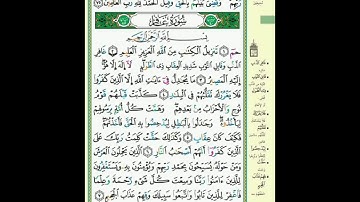 رَبِّهِمْ وَقُضِيَ بَيْنَهُم بِالْحَقِّ وَقِيلَ الْحَمْدُ لِلَّهِ رَبِّ الْعَٰلَمِينَ ٧٥
سُورَةُ غَافِرٍ
بِسْمِ اللَّهِ الرَّحْمَٰنِ الرَّحِيمِ
حمٓ ١ تَنزِيلُ الْكِتَٰبِ مِنَ اللَّهِ الْعَزِيزِ الْعَلِيمِ ٢ غَافِرِ
الذَّنبِ وَقَابِلِ التَّوْبِ شَدِيدِ الْعِقَابِ ذِي الطَّوْلِ لَا إِلَٰهَ إِلَّا هُوَ
إِلَيْهِ الْمَصِيرُ ٣ مَا يُجَٰدِلُ فِي ءَايَٰتِ اللَّهِ إِلَّا الَّذِينَ كَفَرُوا
فَلَا يَغْرُرْكَ تَقَلُّبُهُمْ فِي الْبِلَٰدِ ٤ كَذَّبَتْ قَبْلَهُمْ قَوْمُ
نُوحٍ وَالْأَحْزَابُ مِن بَعْدِهِمْ وَهَمَّتْ كُلُّ أُمَّةٍ بِرَسُولِهِمْ
لِيَأْخُذُوهُ وَجَٰدَلُوا بِالْبَٰطِلِ لِيُدْحِضُوا بِهِ الْحَقَّ فَأَخَذْتُهُمْ
فَكَيْفَ كَانَ عِقَابِ ٥ وَكَذَٰلِكَ حَقَّتْ كَلِمَتُ رَبِّكَ عَلَى
الَّذِينَ كَفَرُوا أَنَّهُمْ أَصْحَٰبُ النَّارِ ٦ الَّذِينَ يَحْمِلُونَ الْعَرْشَ
وَمَنْ حَوْلَهُ يُسَبِّحُونَ بِحَمْدِ رَبِّهِمْ وَيُؤْمِنُونَ بِهِ وَيَسْتَغْفِرُونَ
لِلَّذِينَ ءَامَنُوا رَبَّنَا وَسِعْتَ كُلَّ شَيْءٍ رَّحْمَةً وَعِلْمًا
فَاغْفِرْ لِلَّذِينَ تَابُوا وَاتَّبَعُوا سَبِيلَكَ وَقِهِمْ عَذَابَ الْجَحِيمِ ٧